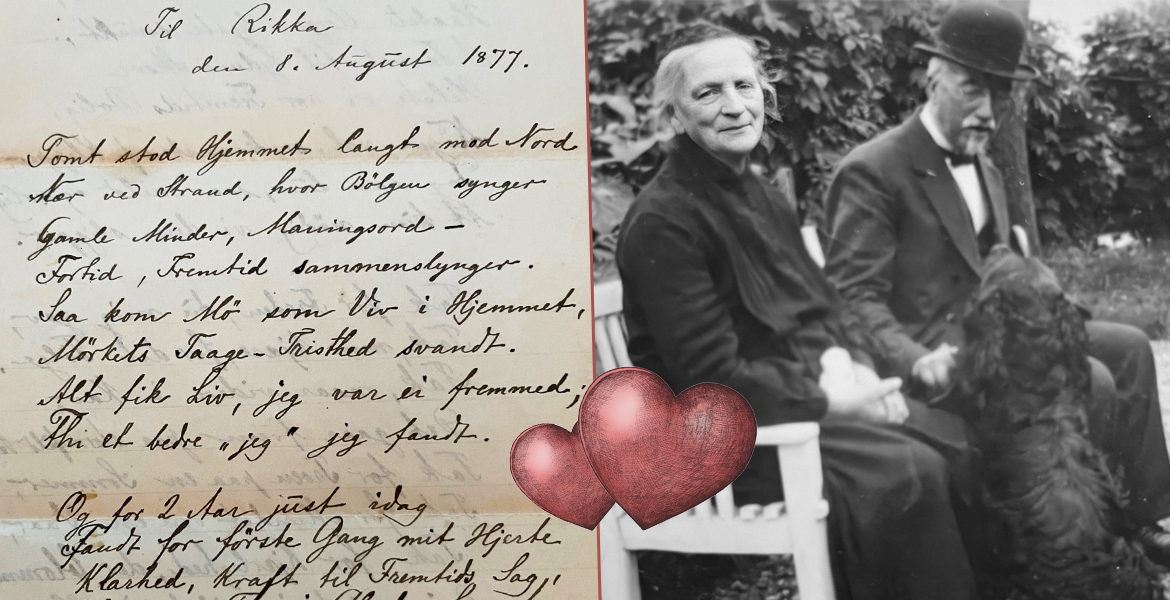 Til Rikka
den 8. August 1877.
Tomt stod Hjemmet langt mod Nord
Nær ved Strand, hvor Bölgen synger
Gamle Minder, Maningsord –
Fortid, Fremtid sammenslynger.
Saa kom Mö som Viv i Hjemmet,
Mörkets Taage – Tristhed svandt.
Alt fik Liv, jeg var ei fremmed;
Thi et bedre „jeg" jeg fandt.
Og for 2 Aar just idag
Fandt for förste Gang mit Hjerte
Klarhed, Kraft til Fremtids Sag,